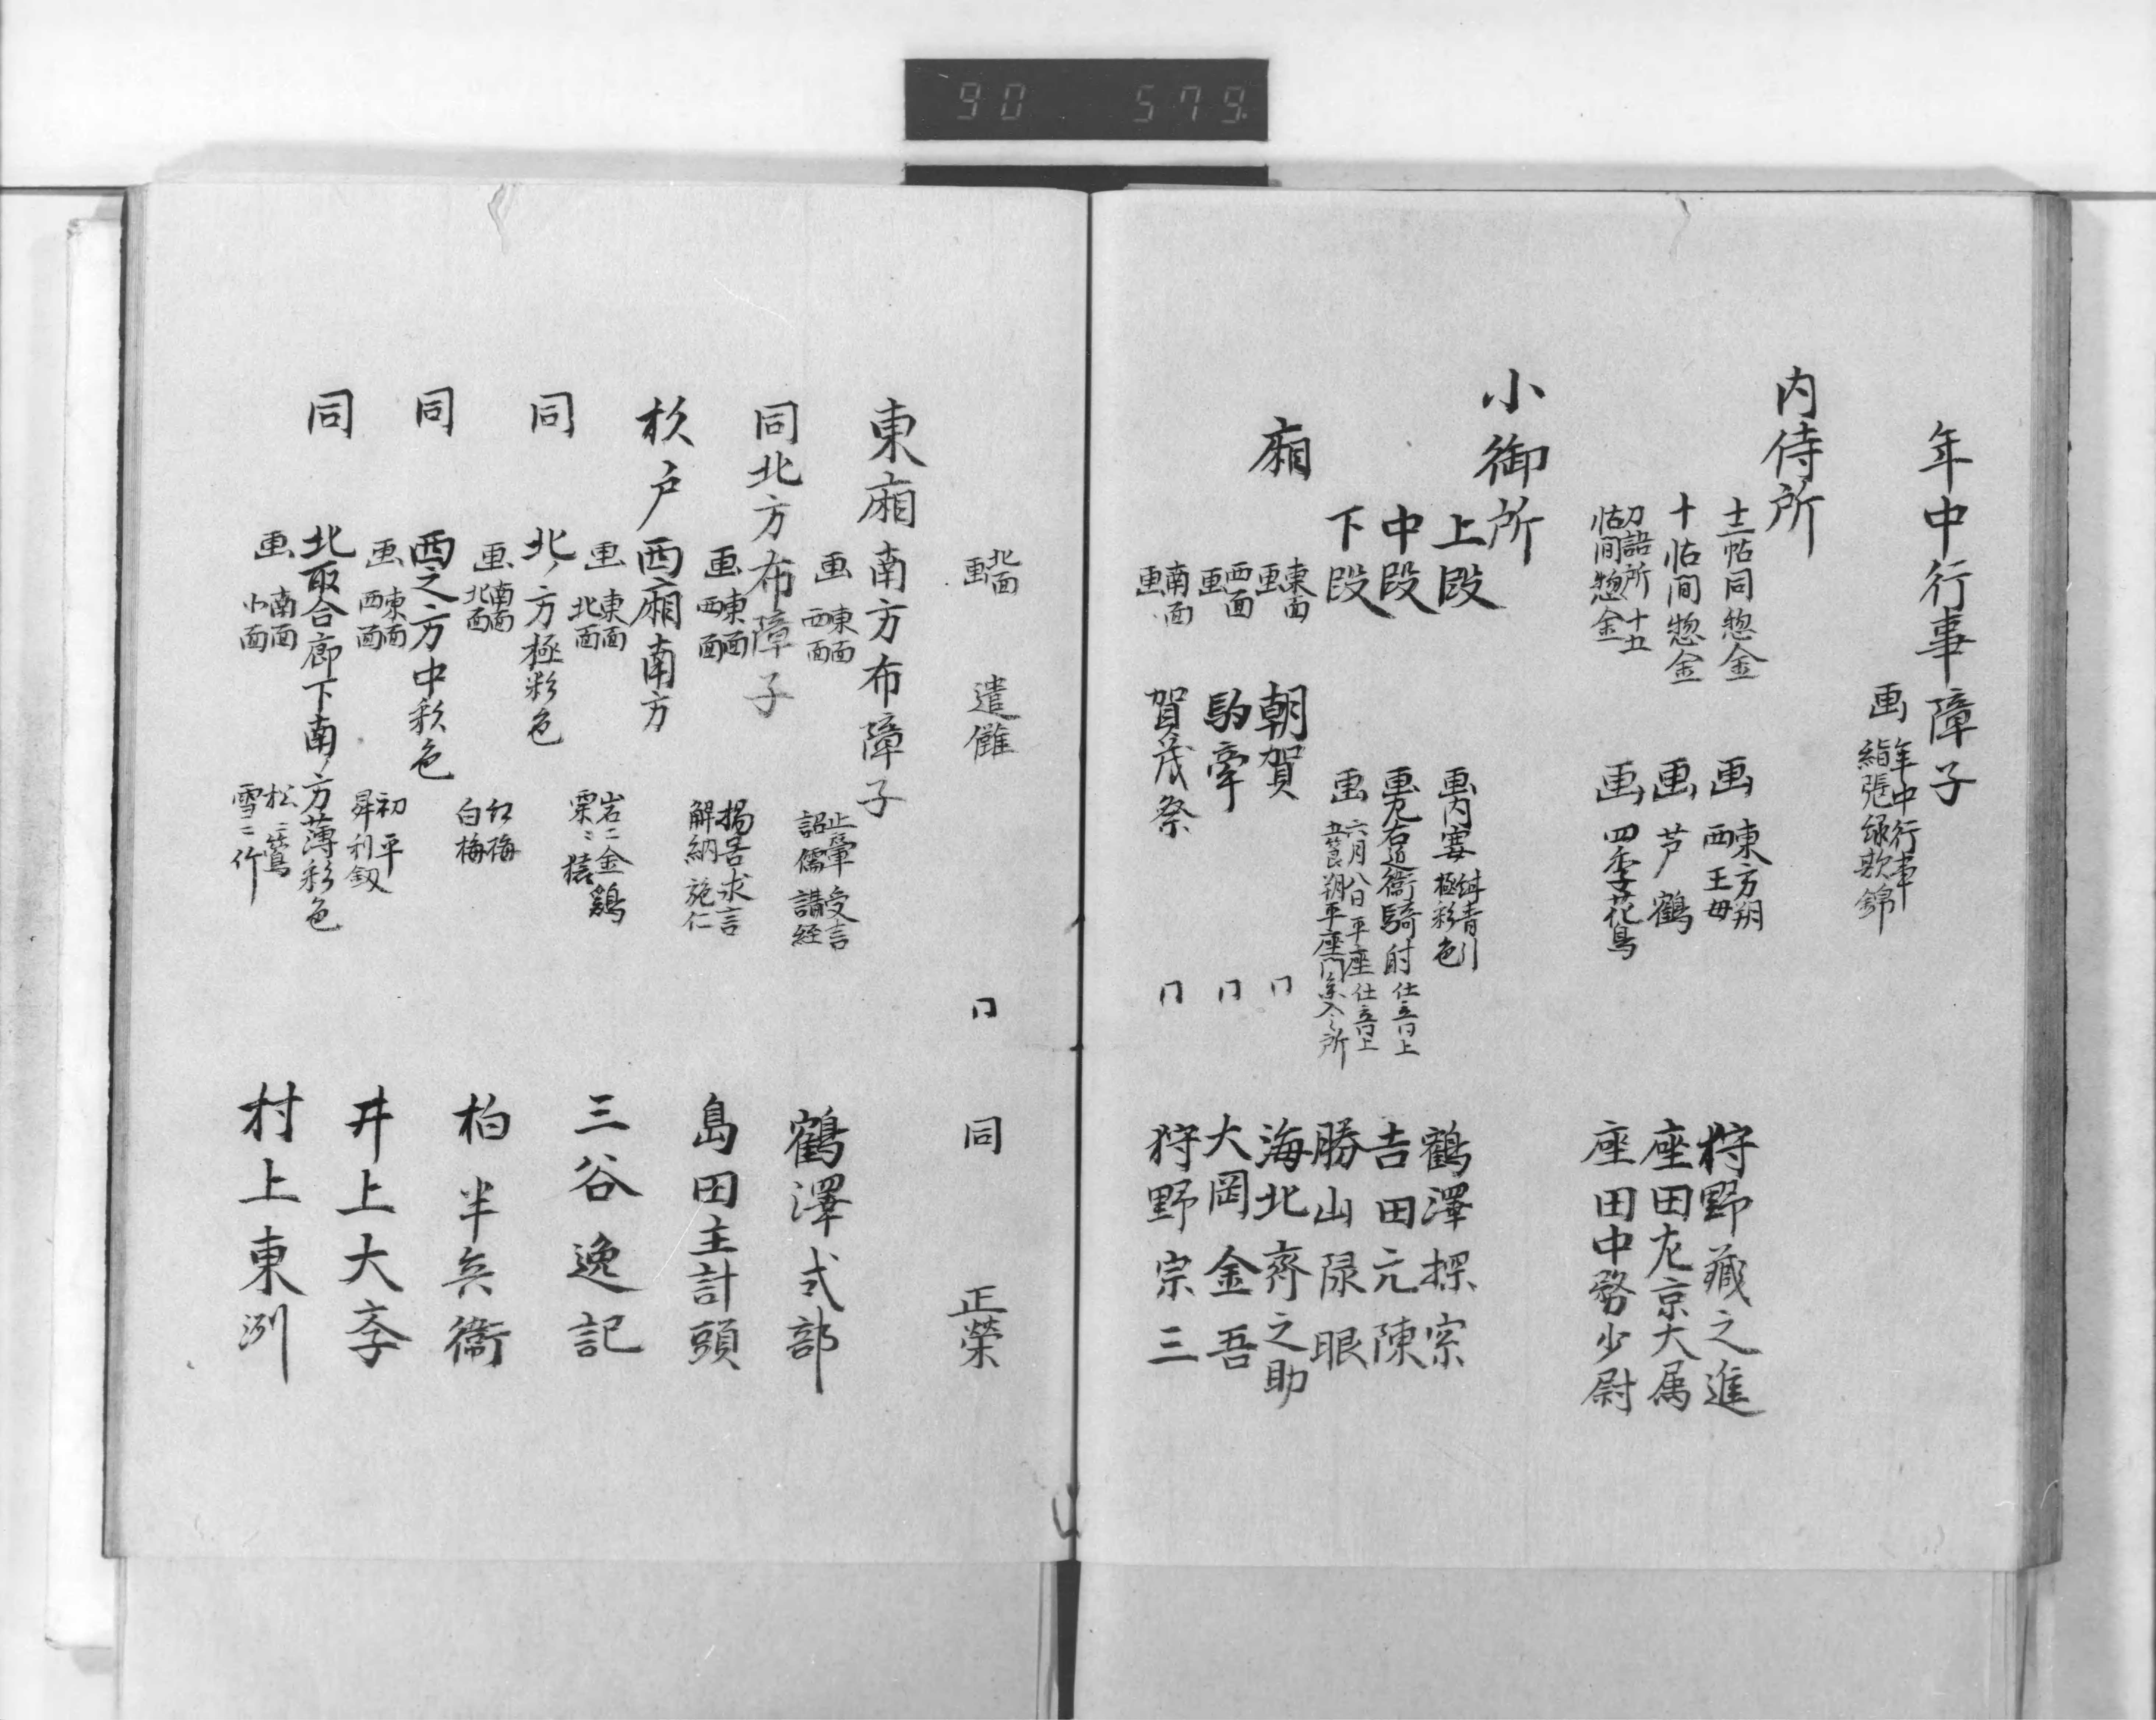 90 579.
年中行事障子
画 年中行事
絹張縁歎錦
内侍所
十二帖同惣金 画 東方朔 西王母 狩野蔵之進
十帖間惣金 画 芦鶴 座田左京大属
刀語所十五帖間惣金 画 四季花鳥 座田中務少尉
小御所
上段 画 内宴 極彩色 鶴澤探宗
中段 画 左右近衛騎射 仕立同上 吉田元陳
下段 画 六月八日平座 仕立同上 勝山隊眼
廂
画 東面 朝賀 同 海北斎之助
画 西面 駒牽 同 大岡金吾
画 南面 賀茂祭 同 狩野宗三
画 北面 遣儺 同 同 正榮
東廂南方布障子
画 東面 西面 止輦受言 詔儒講経 鶴澤式部
同北方布障子
画 東面 西面 揭善求言 解網施仁 島田主計頭
杉戸 西廂南方
画 東面 北面 岩ニ金鶏 栗ニ猿 三谷逸記
同 北ノ方極彩色
画 南面 北面 紅梅 白梅 柏半兵衛
同 西之方中彩色
画 東面 西面 初平 昇利釼 井上大斈
同 北取合廊下南ノ方薄彩色
画 南面 小面 松ニ鶯 雪ニ竹 村上東洌